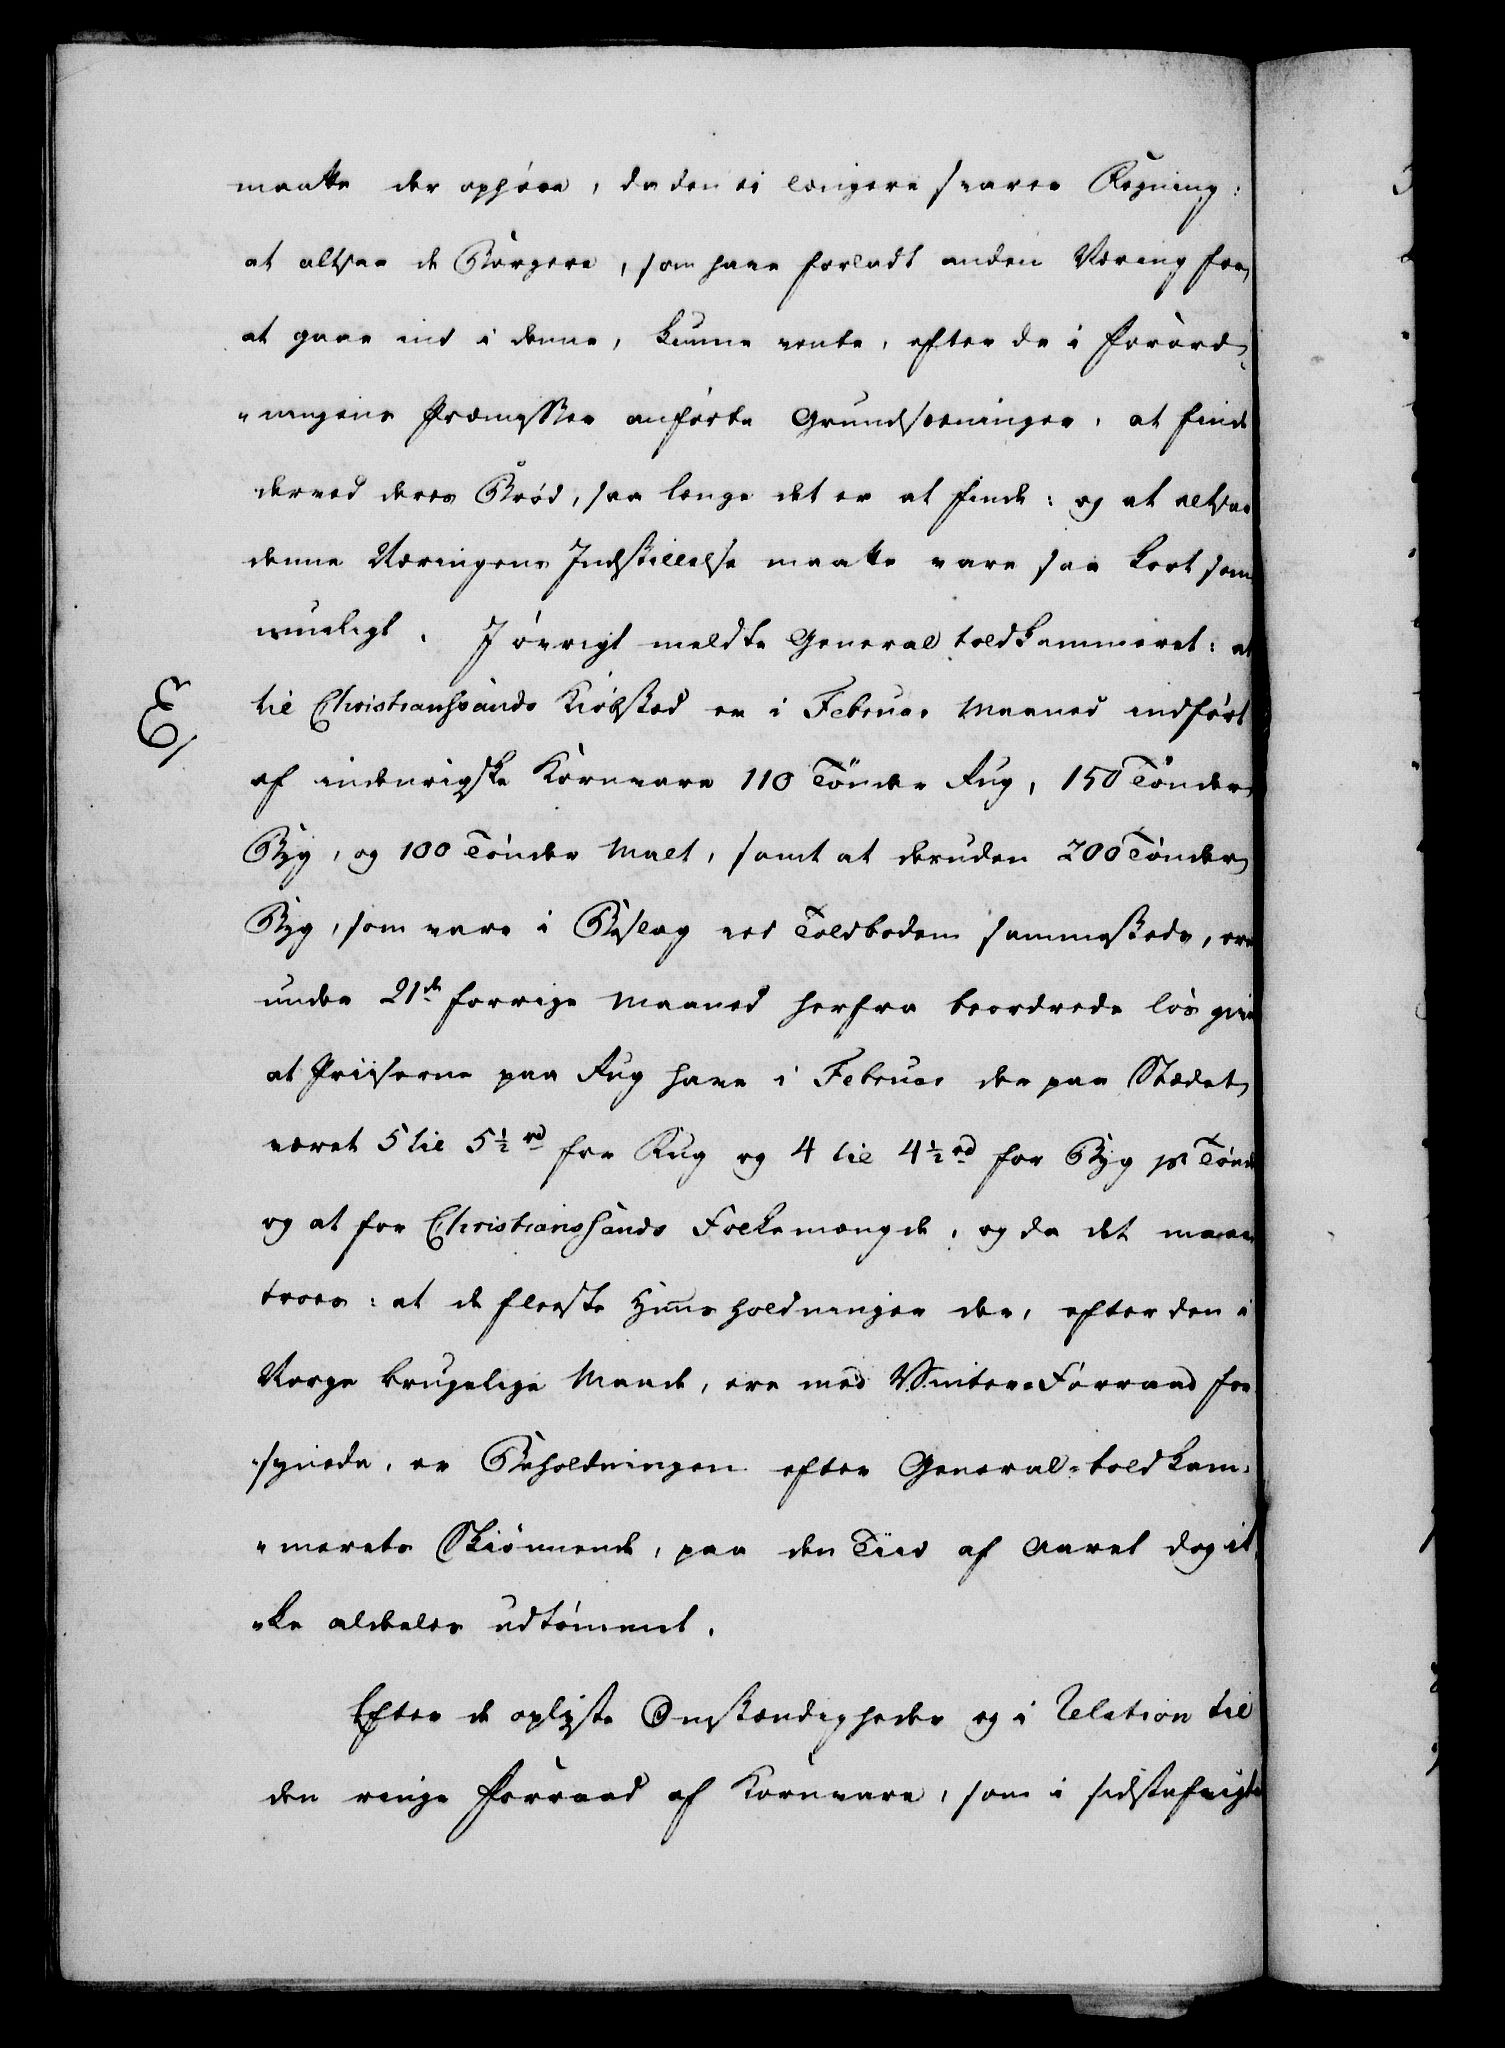 maatte der ophøre, da den ei længere svarer Regning:
at altsaa de Borgere, som have forladt anden Næring for
at gaae ind i denne, kunne vente, efter de i Forord„
„ningens Præmisser anførte Grundsætninger, at finde
derved deres Brød, saa længe det er at finde: og at altsaa
denne Næringens Indstillelse maatte være saa kort som
mueligt. I øvrigt meldte General Toldkammeret: at
E/
til Christianssands Kiøbsted er i Februar Maaned indført
af indenrigske Kornvare 110 Tönder Rug, 150 Tönder
Byg, og 100 Tönder Malt, samt at desuden 200 Tönder
Byg, som vare i Beslag ved Toldboden sammesteds, ere
under 21de forrige Maaned herfra beordrede løs give
at Priiserne paa Rug have i Februar der paa Stædet
været 5 til 5½ rd for Rug og 4 til 4½ rd for Byg pr Tönde
og at for Christianssands Folkemængde, og da det maae
troes: at de fleeste Huusholdninger der, efter den i
Norge brugelige Maade, ere med Vinter-Forraad for
„synede, er Beholdningen efter General-Toldkam„
„merets Skiønnende, paa den Tiid af Aaret dog ik„
„ke aldeles udtømmet.
Efter de oplyste Omstændigheder og i Relation til
den ringe Forraad af Kornvare, som i sidstafvigte